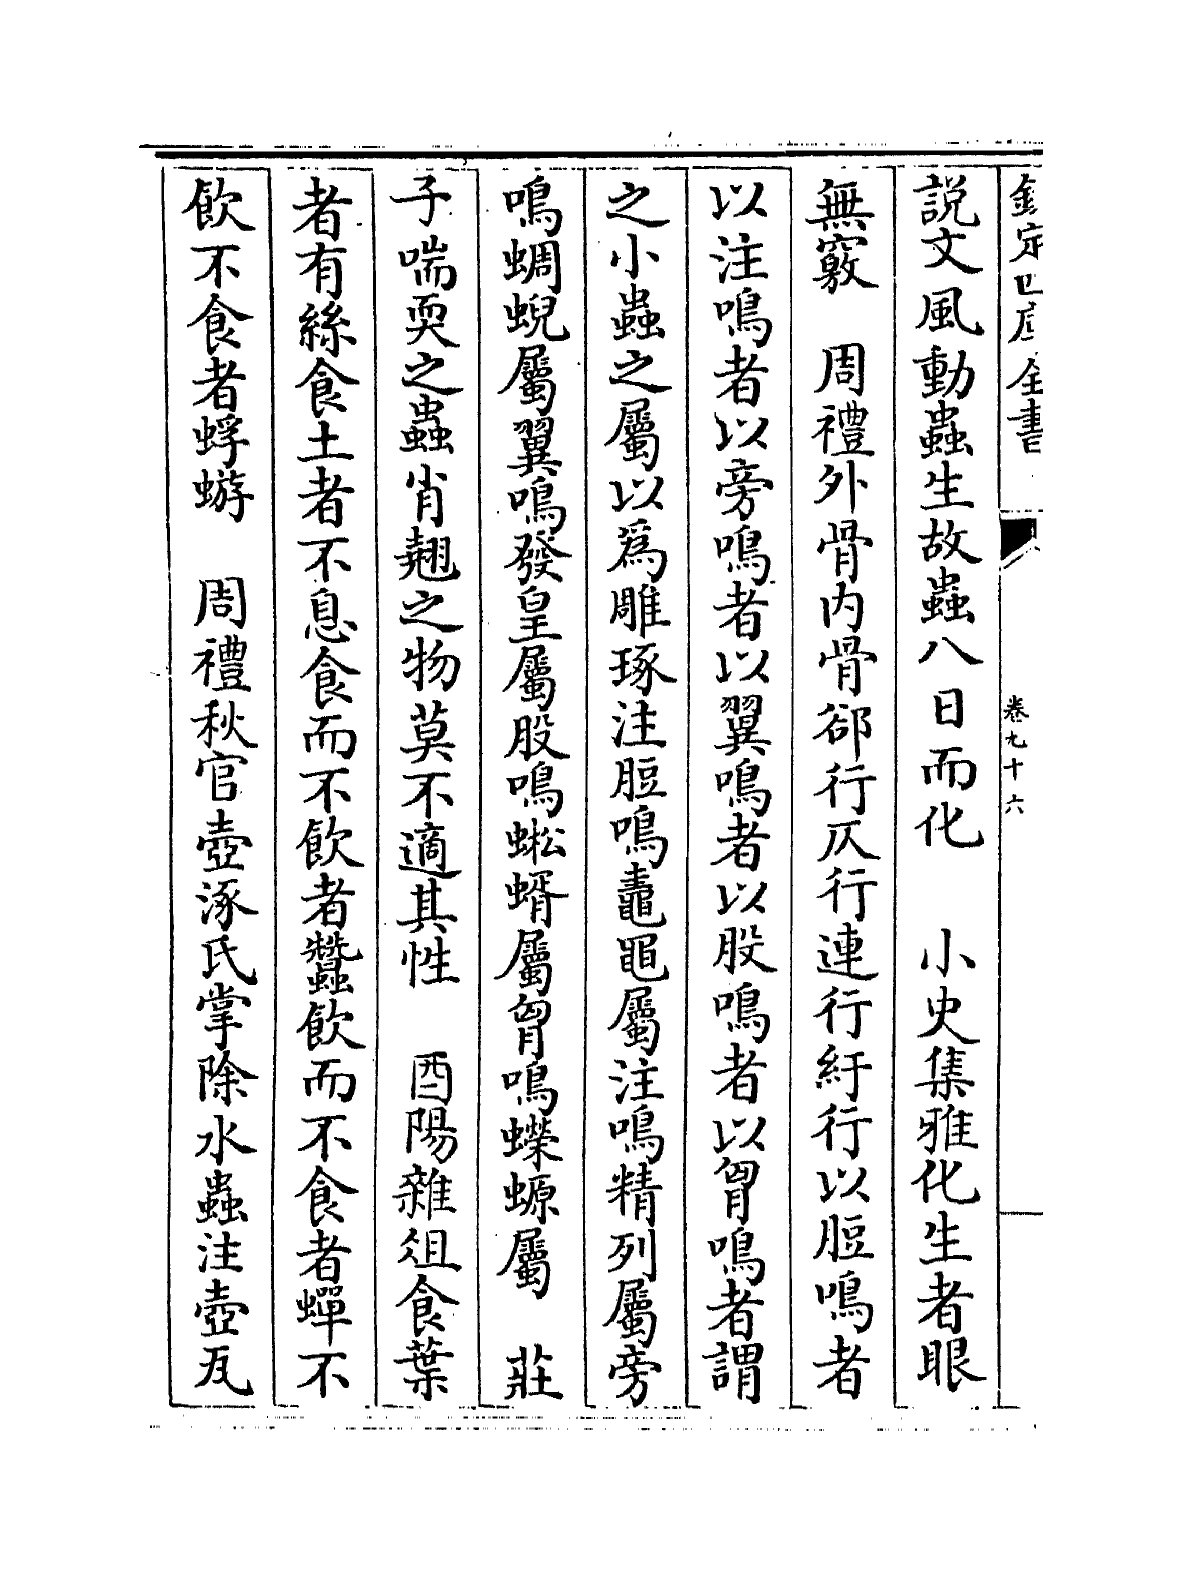 欽定四庫全書
卷九十六
説文風動蟲生故蟲八日而化　小史集雅化生者眼
無竅　周禮外骨内骨郤行仄行連行紆行以脰鳴者
以注鳴者以旁鳴者以翼鳴者以股鳴者以胷鳴者謂
之小蟲之屬以爲雕琢注脰鳴鼃黽屬注鳴精列屬旁
鳴蜩蜺屬翼鳴發皇屬股鳴蚣蝑屬胷鳴蠑螈屬　莊
子喘耎之蟲肖翹之物莫不適其性　酉陽雜俎食葉
者有絲食土者不息食而不飲者蠶飲而不食者蟬不
飲不食者蜉蝣　周禮秋官壺涿氏掌除水蟲注壺瓦